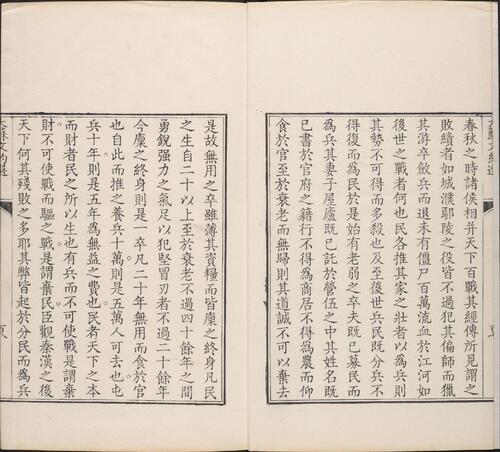 春秋之時諸侯相并天下百戰其經傳所見謂之
敗績者如城濮鄢陵之役皆不過犯其偏師而獵
其游卒斂兵而退未有僵尸百萬流血於江河如
後世之戰者何也民各推其家之壯者以爲兵則
其勢不可得而多殺也及至後世兵民既分兵不
得復而爲民於是始有老弱之卒夫既已募民而
爲兵其妻子屋廬既已託於營伍之中其姓名既
已書於官府之籍行不得爲商居不得爲農而仰
食於官至於衰老而無歸則其道誠不可以棄去
是故無用之卒雖薄其資糧而皆廩之終身凡民
之生自二十以上至於衰老不過四十餘年之間
勇銳强力之氣足以犯堅冒刃者不過二十餘年
今廩之終身則是一卒凡二十年無用而食於官
也自此而推之養兵十萬則是五萬人可去也屯
兵十年則是五年爲無益之費也民者天下之本
而財者民之所以生也有兵而不可使戰是謂棄
財不可使戰而驅之戰是謂棄民臣觀秦漢之後
天下何其殘敗之多耶其弊皆起於分民而爲兵